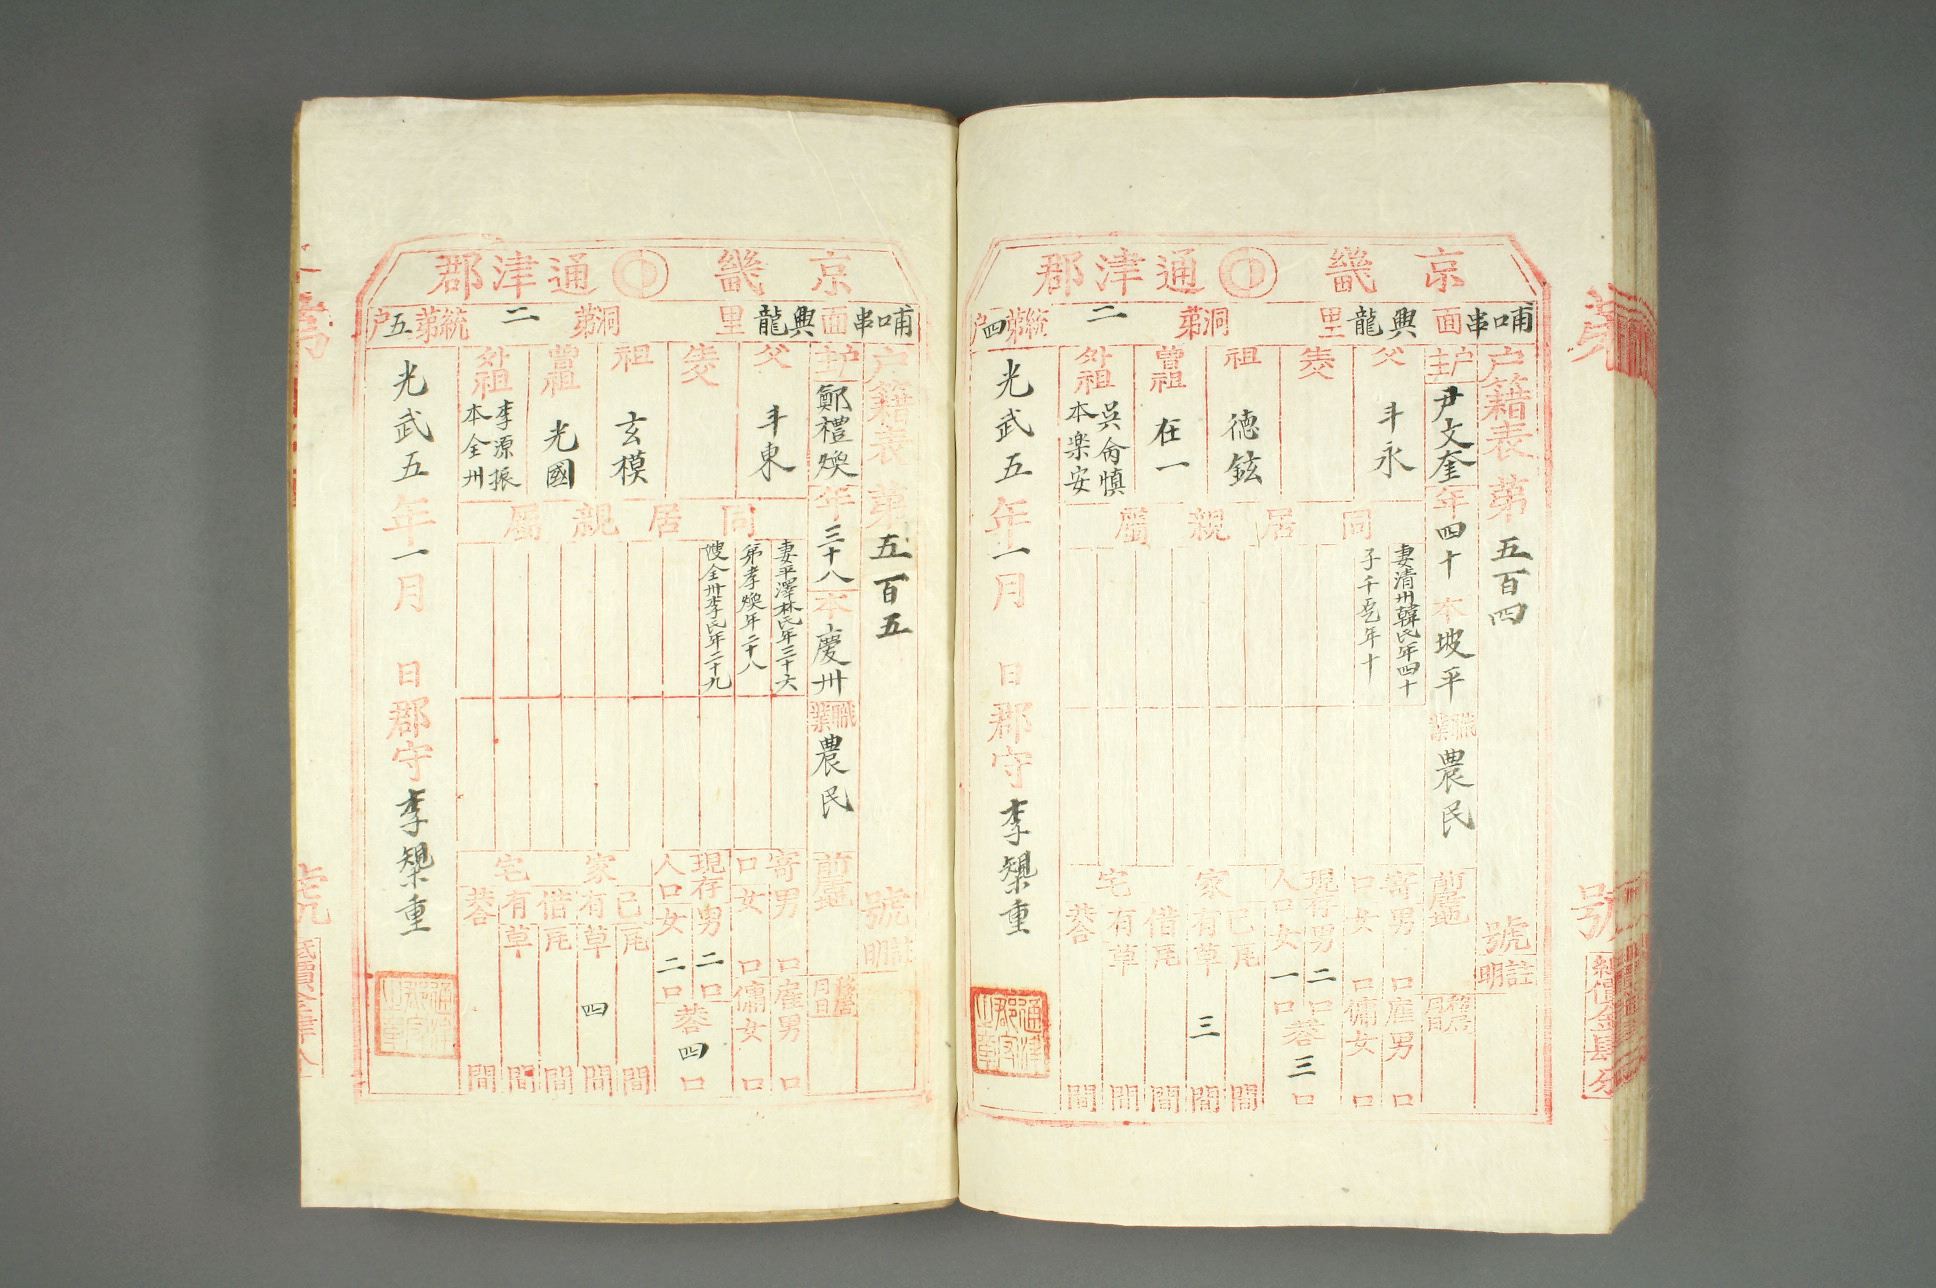 京畿 通津郡
哺口串面興龍里 洞第二統第四戶
戶籍表第五百四號
註明
戶主尹文奎年四十本坡平職業農民
前居地
移居月日
父斗永
生父
祖德鉉
曾祖在一
外祖吳侖慎
本樂安
同居親屬
妻清州韓氏年四十
子千乭年十
寄口男 口女 口
雇男 口
傭女 口
現存人口男二口
女一口
共三口
家宅
己有瓦 間
草三間
借有瓦 間
草 間
共 間
光武五年一月 日郡守李榘重
通津郡守之章
京畿 通津郡
哺口串面興龍里 洞第二統第五戶
戶籍表第五百五號
註明
戶主鄭禮煥年三十八本慶州職業農民
前居地
移居月日
父斗東
生父
祖玄模
曾祖光國
外祖李源振
本全州
同居親屬
妻平澤林氏年三十六
弟孝煥年二十八
嫂全州李氏年二十九
寄口男 口女 口
雇男 口
傭女 口
現存人口男二口
女二口
共四口
家宅
己有瓦 間
草四間
借有瓦 間
草 間
共 間
光武五年一月 日郡守李榘重
通津郡守之章